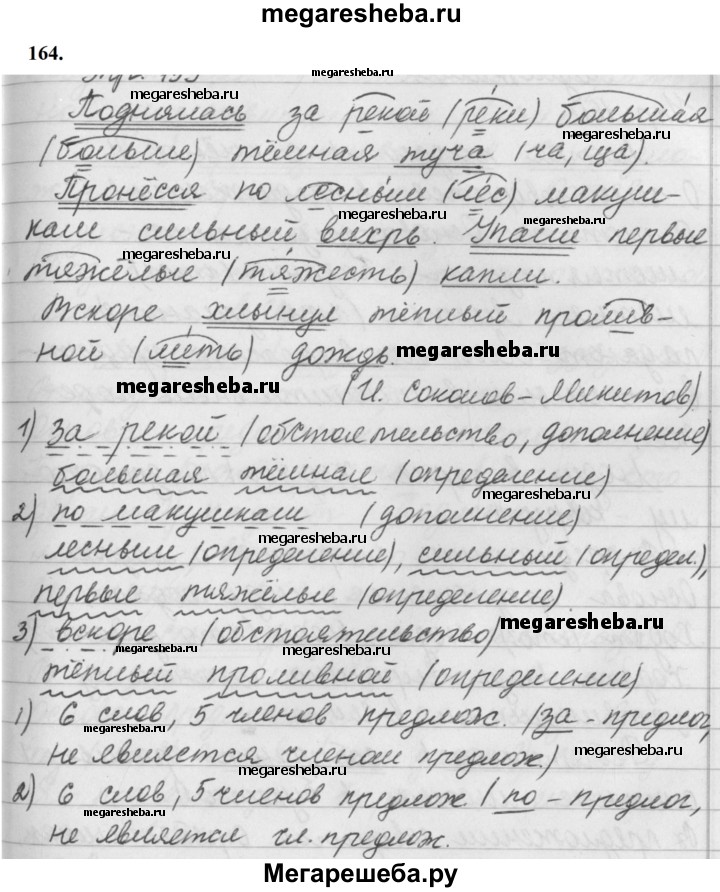 megaresheba.ru
164.
megaresheba.ru
Поднялась за рекой (реки) большая
megaresheba.ru
megaresheba.ru
(больше) тёмная туча (ча, ща).
megaresheba.ru
Пронёсся по лесным (лес) макуш-
megaresheba.ru
megaresheba.ru
кам сильный вихрь. Упали первые
megaresheba.ru
тяжёлые (тяжесть) капли.
Вскоре хлынул тёплый пролив-
ной (лить) дождь. megaresheba.ru
megaresheba.ru
(И. Соколов-Микитов)
1) за рекой (обстоятельство, дополнение)
большая тёмная (определение)
megaresheba.ru
2) по макушкам (дополнение)
megaresheba.ru
лесным (определение), сильный (определ.),
первые тяжёлые (определение)
megaresheba.ru
3) вскоре (обстоятельство) megaresheba.ru
тёплый проливной (определение)
megaresheba.ru
1) 6 слов, 5 членов предлож. (за - предлог,
не является членом предлож.) megaresheba.ru
megaresheba.ru
2) 6 слов, 5 членов предлож. (по - предлог,
megaresheba.ru
не является чл. предлож.
megaresheba.ru
Мегарешеба.ру